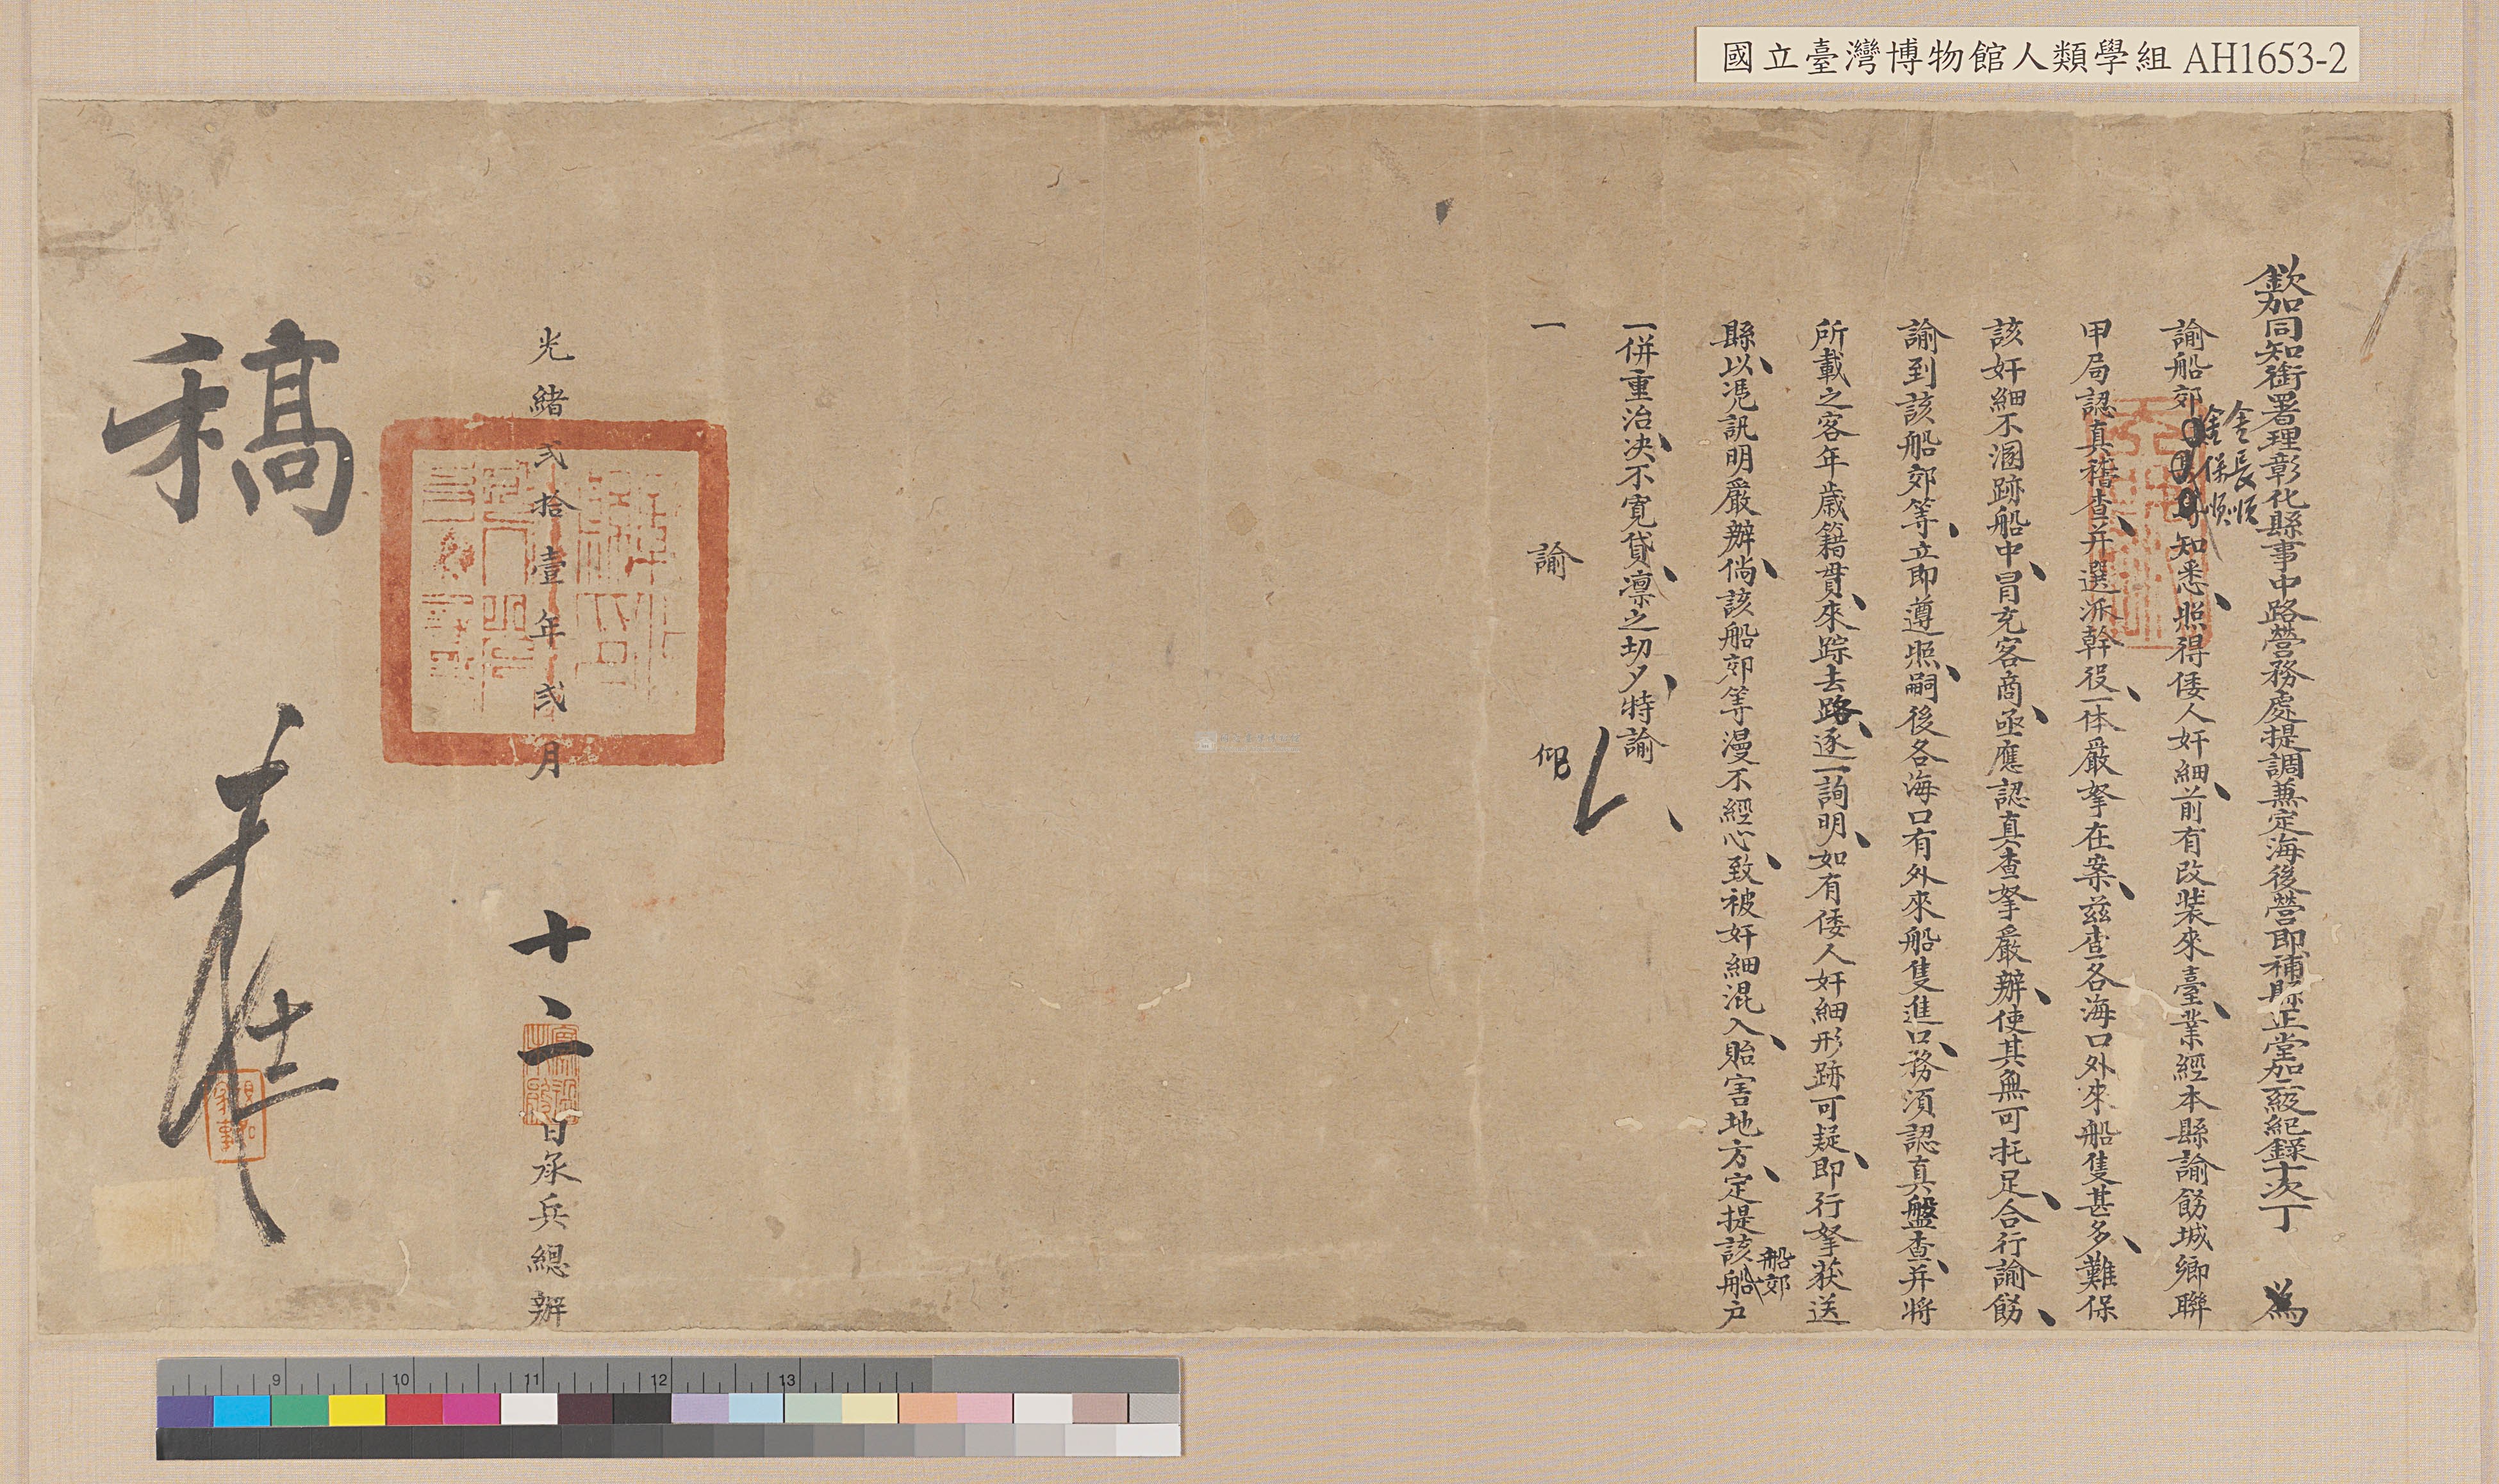 國立臺灣博物館人類學組 AH1653-2
欽加同知銜署理彰化縣事中路營務處提調兼定海後營即補縣正堂加三級紀錄十次丁 為
諭船郊
金長順
金保順
知悉照得倭人奸細前有改裝來臺業經本縣諭飭城鄉聯
甲局認真稽查并選派幹役一体嚴拏在案茲查各海口外來船隻甚多難保
該奸細不溷跡船中冒充客商亟應認真查拏嚴辦使其無可托足合行諭飭
諭到該船郊等立即遵照嗣後各海口有外來船隻進口務須認真盤查并將
所載之客年歲籍貫來踪去路逐一詢明如有倭人奸細形跡可疑即行拏获送
縣以凭訊明嚴辦倘該船郊等漫不經心致被奸細混入貽害地方定提該船戶
船郊
一併重治决不寬貸凛之切夕特諭
一 諭 仰
光緒弍拾壹年弍月 十二 日承兵總辦
稿
9 10 11 12 13